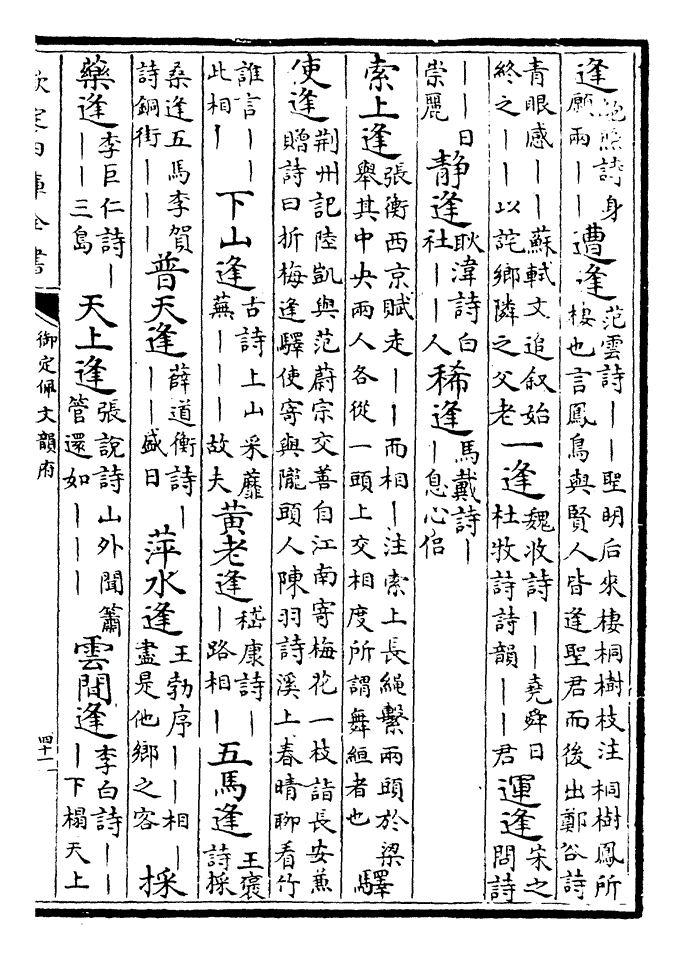 逢鮑照詩身願兩｜｜遭逢范雲詩｜｜聖明后來棲桐樹枝注桐樹鳳所棲也言鳳鳥與賢人皆逢聖君而後出鄭谷詩
青眼感｜｜蘇軾文追叙始終之｜｜以詫鄉隣之父老一逢魏收詩｜｜堯舜日杜牧詩詩韻｜｜君運逢宋之問詩
｜｜日崇麗靜逢耿湋詩白社｜｜人稀逢馬戴詩｜｜息心侣
索上逢張衡西京賦走｜｜而相｜注索上長繩繫兩頭於梁舉其中央兩人各從一頭上交相度所謂舞絙者也驛
使逢荆州記陸凱與范蔚宗交善自江南寄梅花一枝詣長安兼贈詩曰折梅逢驛使寄與隴頭人陳羽詩溪上春晴聊看竹
誰言｜｜｜此相｜下山逢古詩上山采蘼蕪｜｜｜故夫黄老逢嵇康詩｜｜路相｜五馬逢王褒詩採
桑逢五馬李賀詩銅街｜｜｜普天逢薛道衡詩｜｜｜盛日萍水逢王勃序｜｜相｜盡是他鄉之客採
藥逢李巨仁詩｜｜｜三島天上逢張說詩山外聞簫管還如｜｜｜雲間逢李白詩｜｜｜下榻天上
欽定四庫全書
御定佩文韻府
四十一